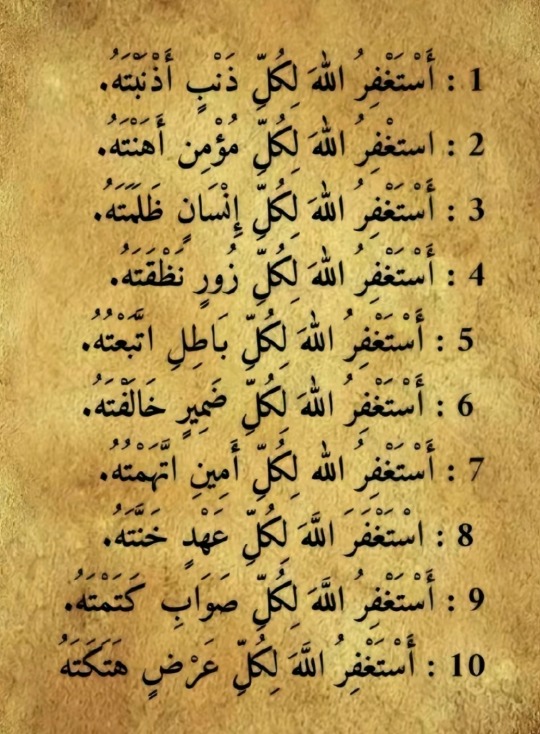 1 : أَسْتَغْفِرُ اللهَ لِكُلِّ ذَنْبٍ أَذْنَبْتَهُ.
2 : استغْفِرُ اللهَ لِكُلِّ مُؤْمِن أَهَنْتَهُ.
3 : أَسْتَغْفِرُ اللهَ لِكُلِّ إِنْسَانٍ ظَلَمَتَهُ.
4 : أَسْتَغْفِرُ اللهَ لِكُلِّ زُورٍ نَظْقَتَهُ.
5 : أَسْتَغْفِرُ اللهَ لِكُلِّ بَاطِلِ اتَّبَعْتهُ.
6 : أَسْتَغْفِرُ اللهَ لِكُلِّ ضَمِيرٍ خَالَفْتَهُ.
7 : أَسْتَغْفِرُ الله لِكُلِّ أَمِينِ اتَّهَمْتهُ.
8 : اسْتَغْفَرَ اللَّهَ لِكُلِّ عَهْدٍ خَنَّتَهُ.
9 : أَسْتَغْفِرُ اللَّهَ لِكُلِّ صَوَابِ كَتَمْتَهُ.
10 : أَسْتَغْفِرُ اللَّهَ لِكُلِّ عَرْضٍ هَتَكَتَهُ